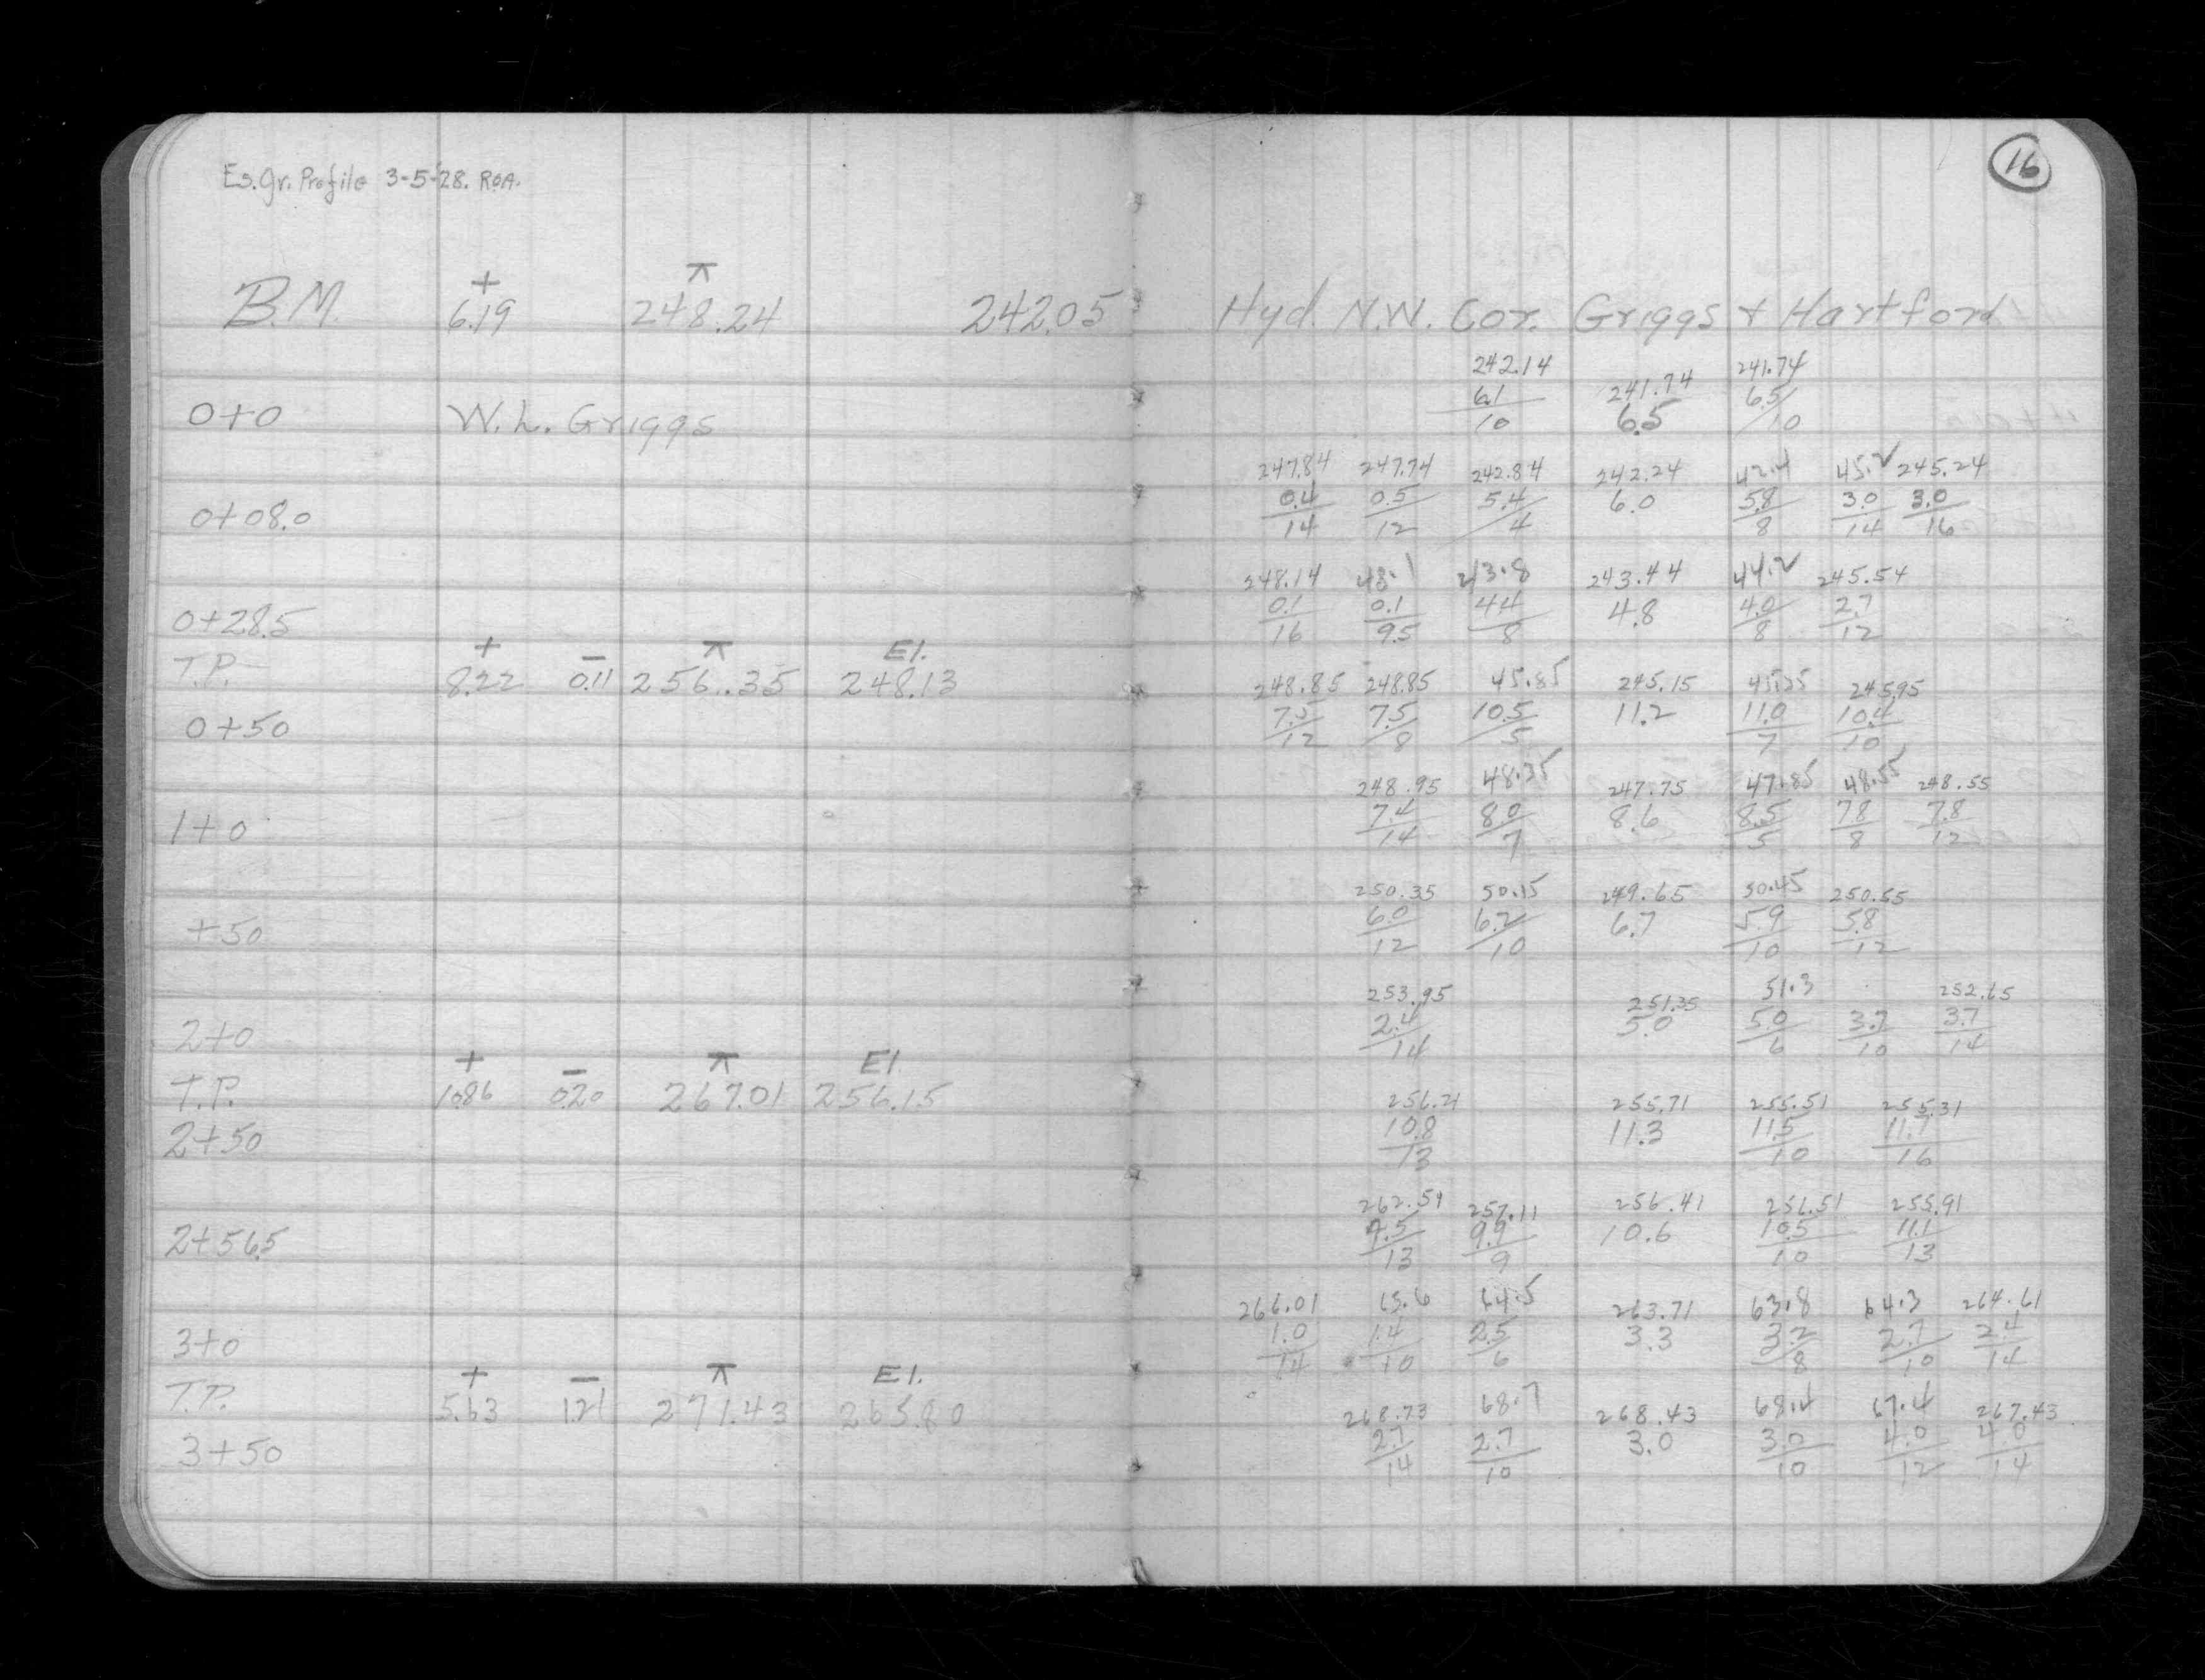 16
Es. Gr. Profile 3-5-28. R.O.A.
+ ⊼
B.M. 6.19 248.24 242.05 Hyd. N.W. Cor. Griggs + Hartford
242.14 241.74 241.74
0+0 W. L. Griggs 6.1/10 6.5 6.5/10
247.84 247.74 242.84 242.24 42.4 45.2 245.24
0+08.0 0.4/14 0.5/12 5.4/4 6.0 5.8/8 3.0/14 3.0/16
248.14 48.1 43.8 243.44 44.2 245.54
0+28.5 0.1/16 0.1/9.5 4.4/8 4.8 4.0/8 2.7/12
+ - ⊼ El.
T.P. 8.22 0.11 256.35 248.13
248.85 248.85 45.85 245.15 45.35 245.95
0+50 7.5/12 7.5/8 10.5/5 11.2 11.0/7 10.4/10
248.95 48.35 247.75 47.85 48.55 248.55
1+0 7.4/14 8.0/7 8.6 8.5/5 7.8/8 7.8/12
250.35 50.15 249.65 50.45 250.55
+50 6.0/12 6.2/10 6.7 5.9/10 5.8/12
253.95 251.35 51.3 252.65
2+0 2.4/14 5.0 5.0/6 3.7/10 3.7/14
+ - ⊼ El.
T.P. 10.86 0.20 267.01 256.15
256.21 255.71 255.51 255.31
2+50 10.8/13 11.3 11.5/10 11.7/16
257.11 256.41 256.51 255.91
2+56.5 9.9/9 10.6 10.5/10 11.1/13
266.01 65.6 64.5 263.71 63.8 64.3 264.61
3+0 1.0/14 1.4/10 2.5/6 3.3 3.2/8 2.7/10 2.4/14
+ - ⊼ El.
T.P. 5.63 1.21 271.43 265.80
268.73 68.7 268.43 68.4 67.4 267.43
3+50 2.7/14 2.7/10 3.0 3.0/10 4.0/12 4.0/14